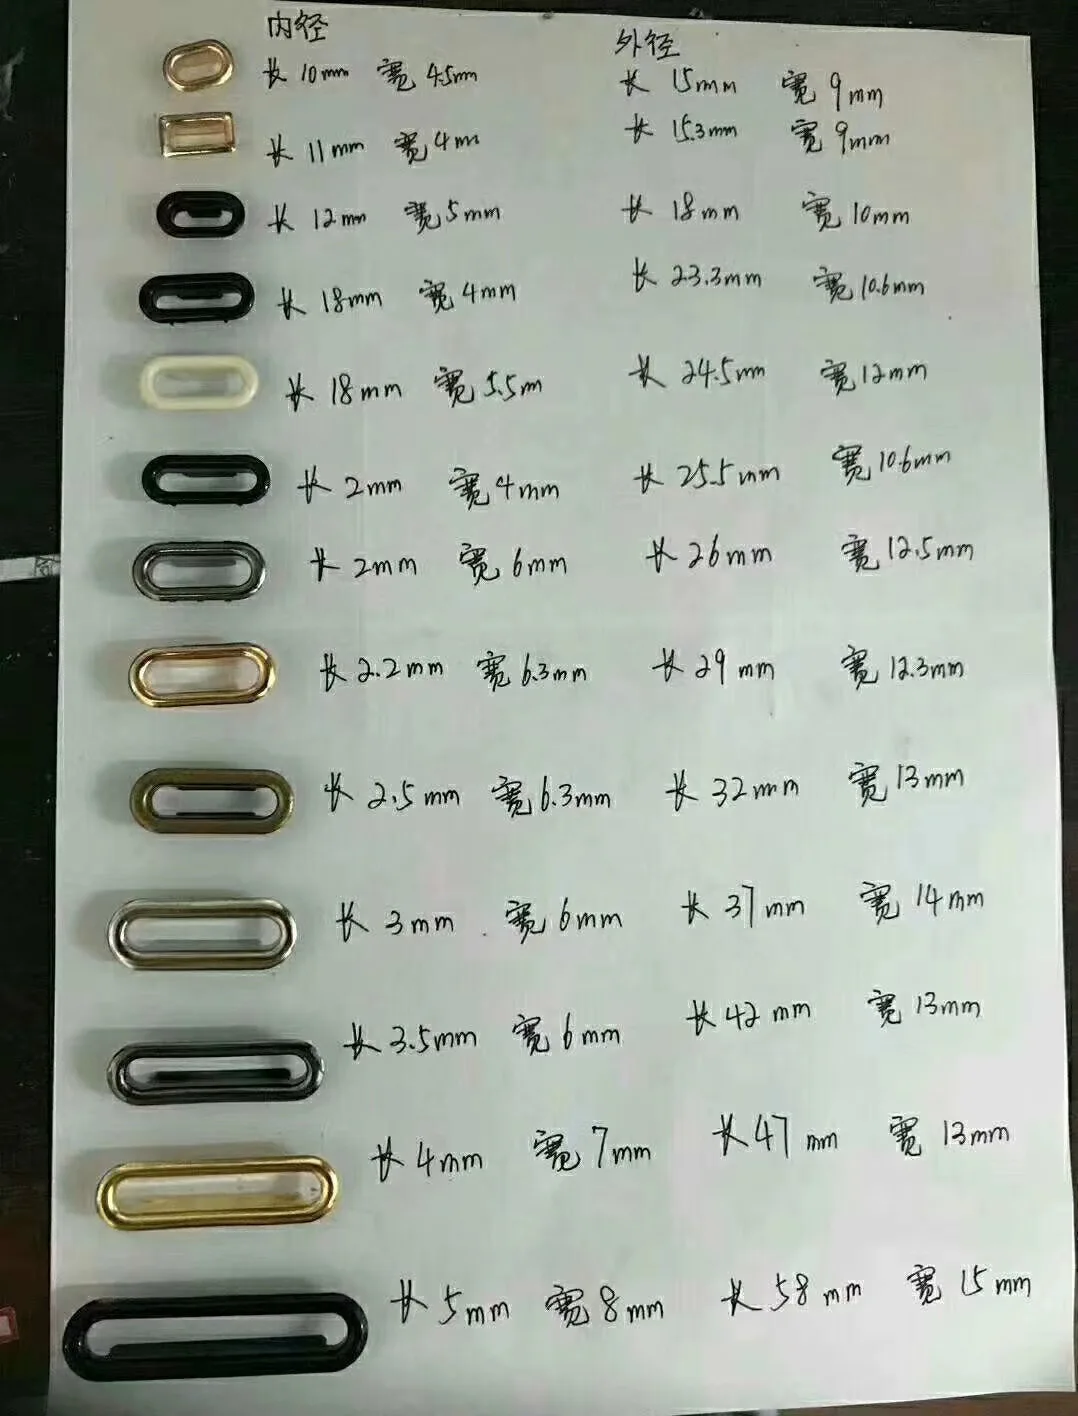 内径 外径
长 10mm 宽 4.5mm 长 15mm 宽 9mm
长 11mm 宽 4mm 长 15.3mm 宽 9mm
长 12mm 宽 5mm 长 18mm 宽 10mm
长 18mm 宽 4mm 长 23.3mm 宽 10.6mm
长 18mm 宽 5.5m 长 24.5mm 宽 12mm
长 2mm 宽 4mm 长 25.5mm 宽 10.6mm
长 2mm 宽 6mm 长 26mm 宽 12.5mm
长 2.2mm 宽 6.3mm 长 29mm 宽 12.3mm
长 2.5mm 宽 6.3mm 长 32mm 宽 13mm
长 3mm 宽 6mm 长 37mm 宽 14mm
长 3.5mm 宽 6mm 长 42mm 宽 13mm
长 4mm 宽 7mm 长 47mm 宽 13mm
长 5mm 宽 8mm 长 58mm 宽 15mm